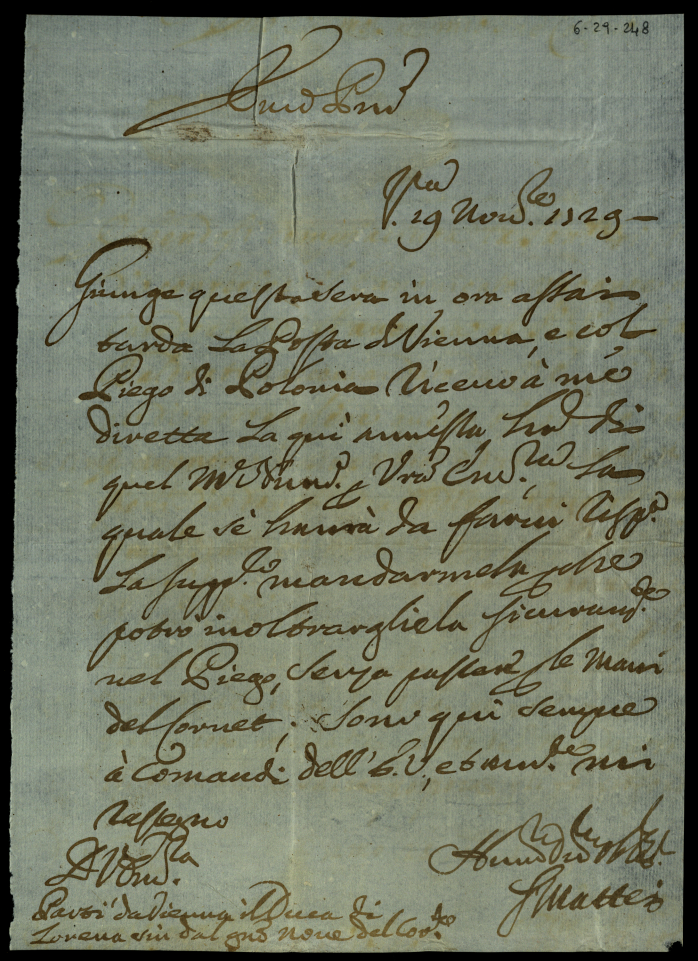 6-29-248
Emo Prn̄e
29 Nov.re 1729
Giunge questa sera in ora assai
tarda La Posta di Vienna, e col
Piego di Polonia Ricevo à me
diretta La qui annessa di
quel Vra La
quale sè havrà da farvi Risp.a
La supp.o mandarmela, che
potrò inoltrargliela sicuram.te
nel Piego, senza passar le mani
del Cornet; Sono qui sempre
à Comandi dell' E.V., et mi
rassegno
D V Em.za
S Mattei
Partì da Vienna il Duca di
Lorena sin dal gno nove del Cor.te